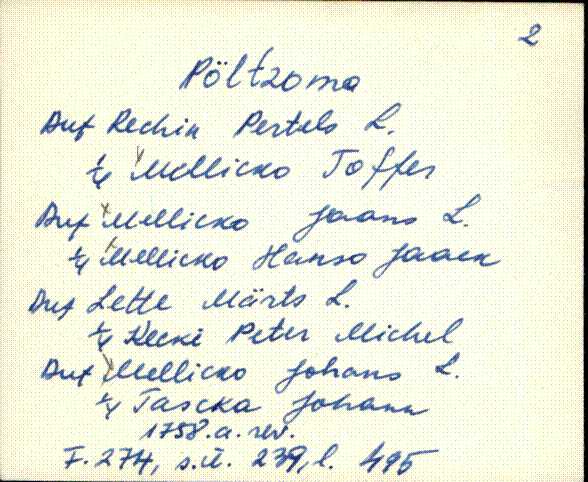 2
Pöltzoma
Auf Rechin Pertels L.
Mellicko Toffer
Auf Mellicko Jaans L.
Mellicko Hanso Jaack
Auf Lette Märts L.
Kecki Peter Michel
Auf Mellicko Johans L.
Tascka Johann
1758.a. rev.
F. 274, s.ü. 239, l. 495